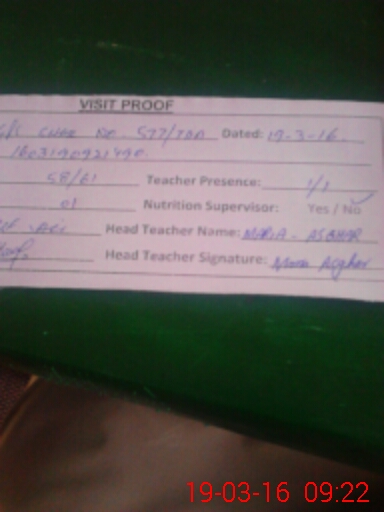 VISIT PROOF
No 577/TDA Dated: 19-3-16.
58/61 Teacher Presence: 1/1
01 Nutrition Supervisor: Yes / No
Head Teacher Name: MARIA - ASGHAR
Head Teacher Signature: Maria Asghar
19-03-16 09:22